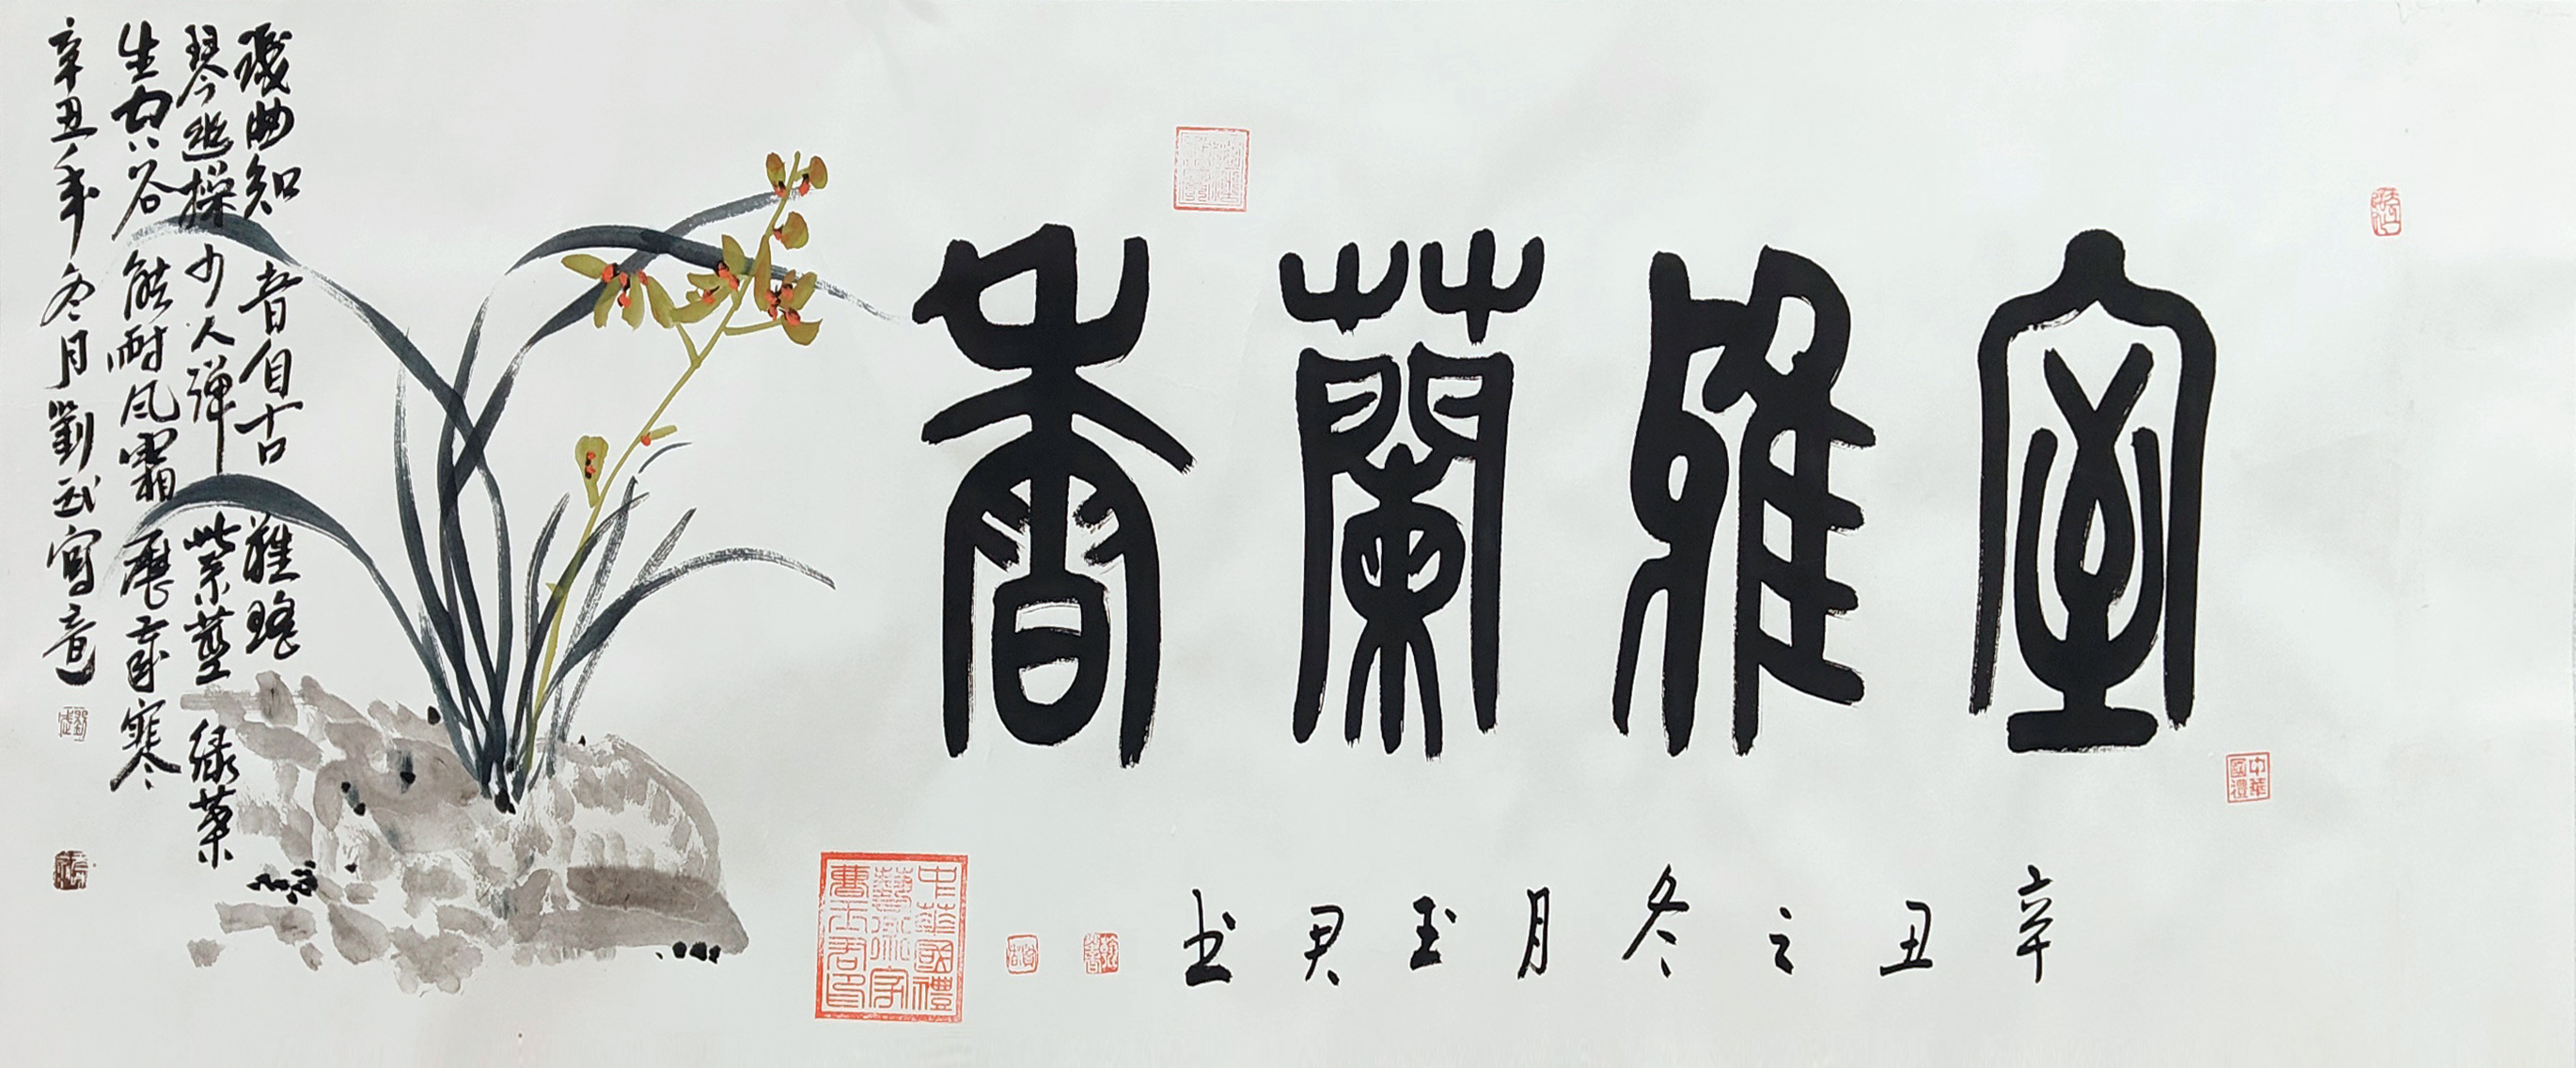 室雅蘭香
辛丑之冬月玉君书
中華國禮
中華國禮藝術家曹玉君印
幾曲知音自古難瑤
琴幽操少人彈紫莖绿葉
生空谷能耐风霜歷歲寒
辛丑年冬月劉武寫意